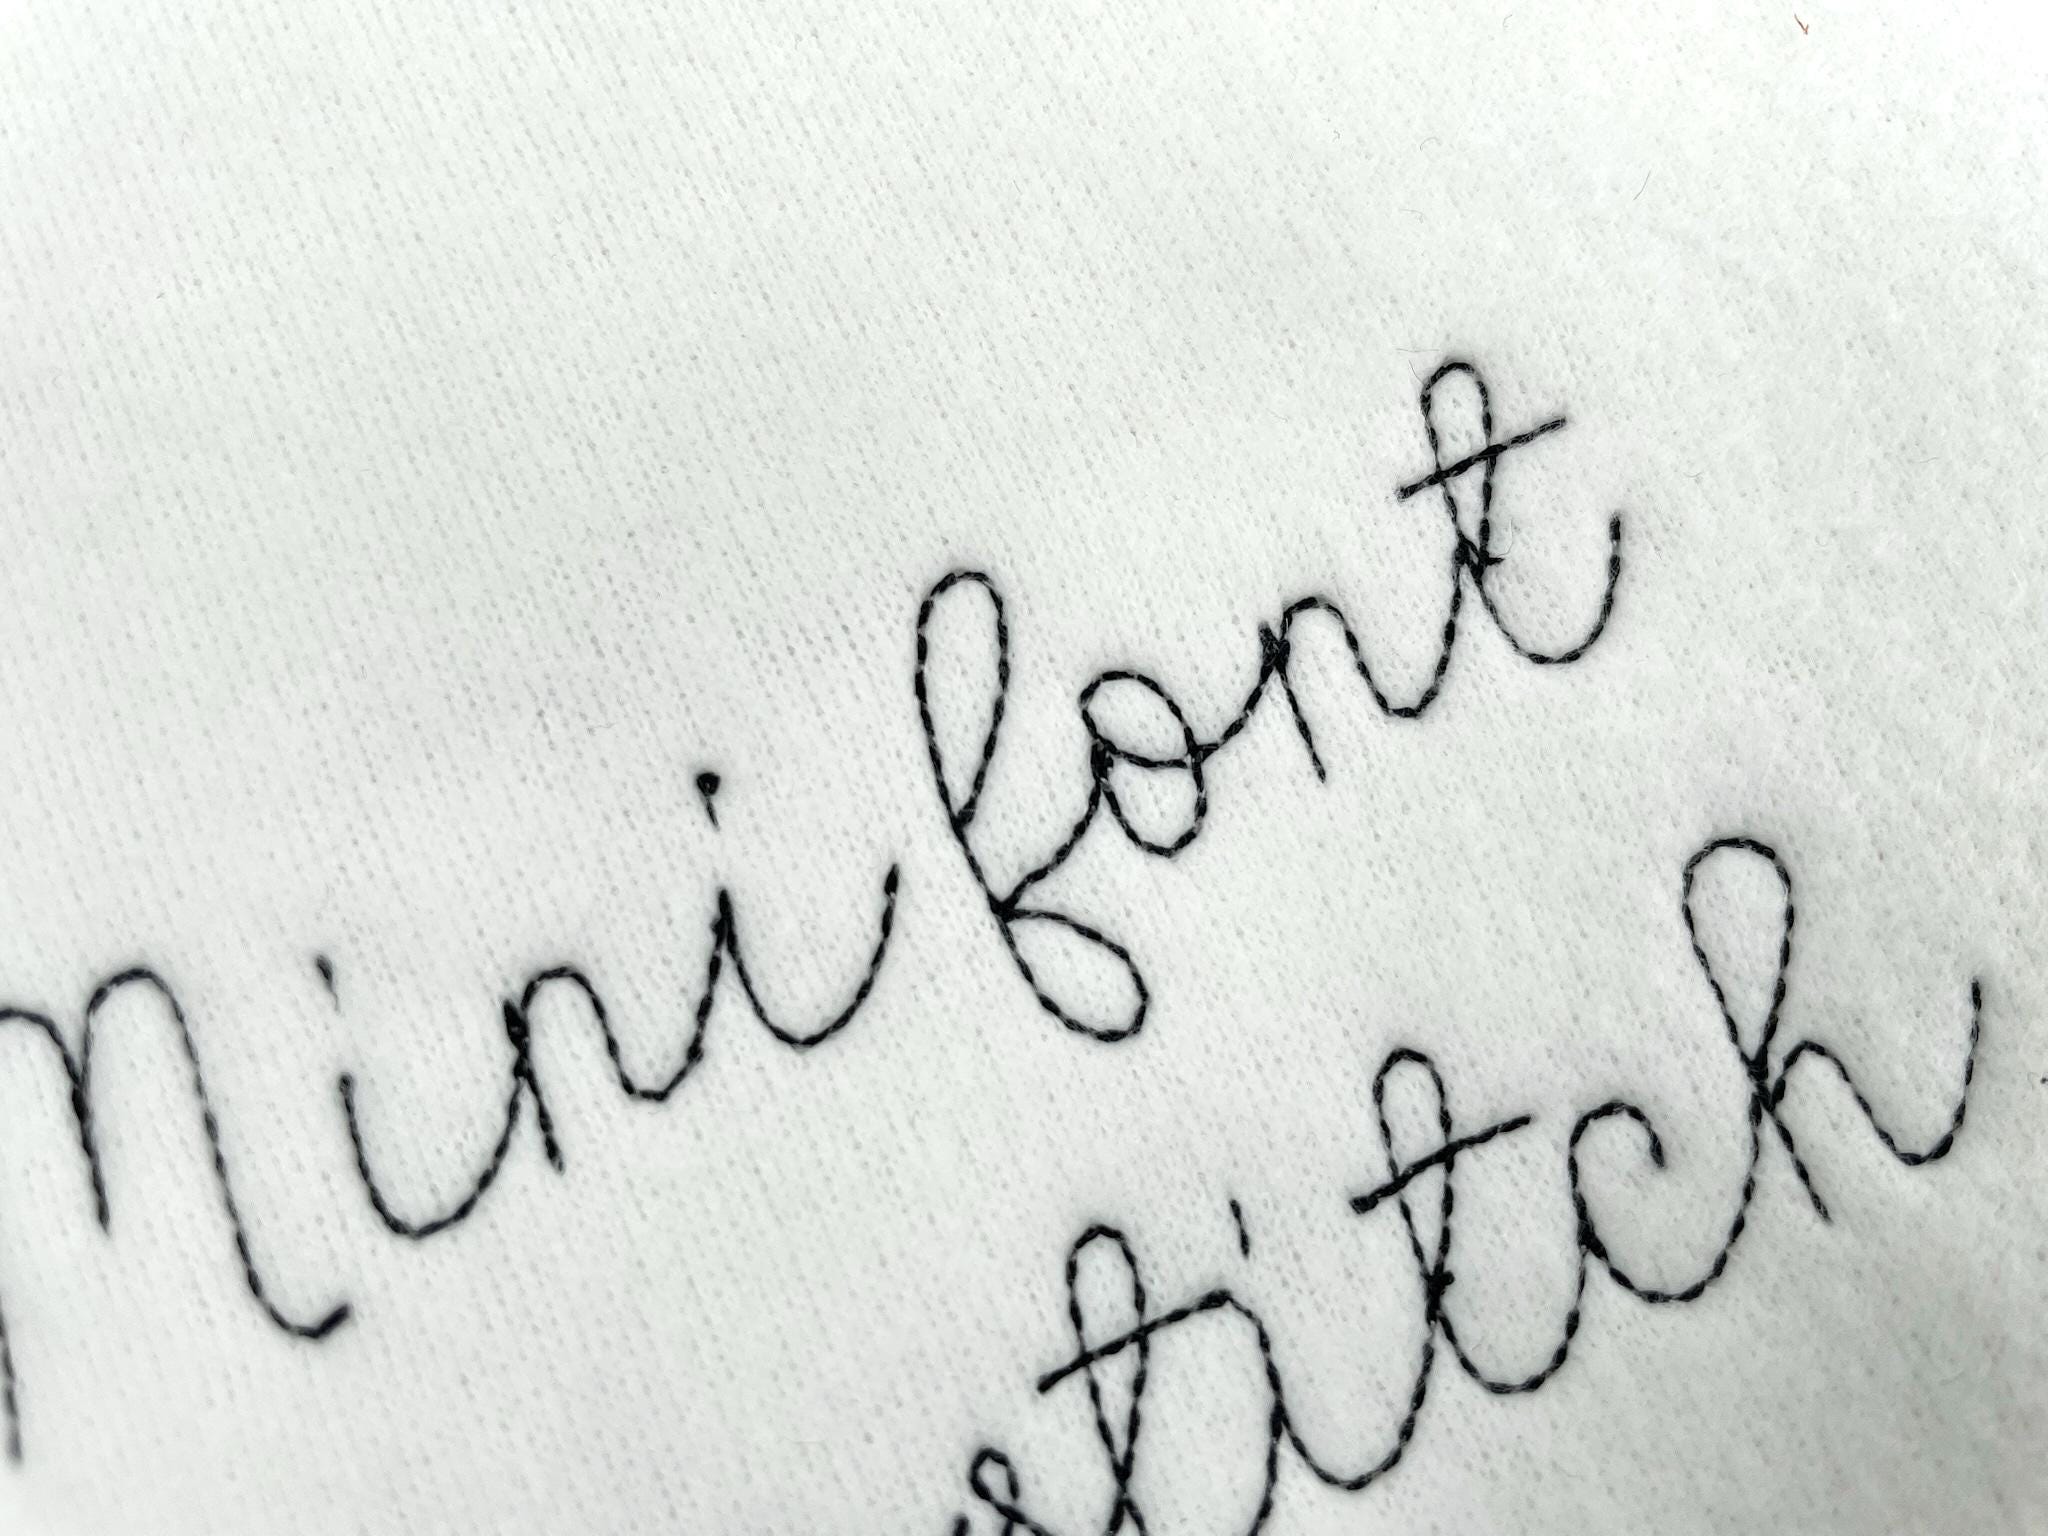 mini font
stitch